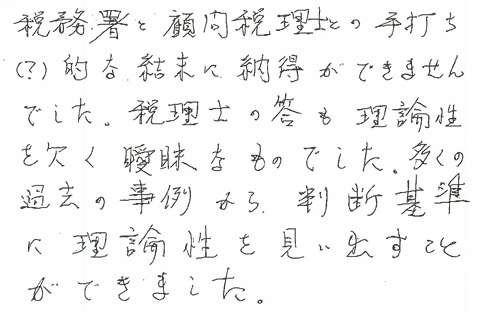 税務署と顧問税理士との手打ち
(?)的な結末に納得ができません
でした。税理士の答も理論性
を欠く曖昧なものでした。多くの
過去の事例から、判断基準
に理論性を見い出すこと
ができました。